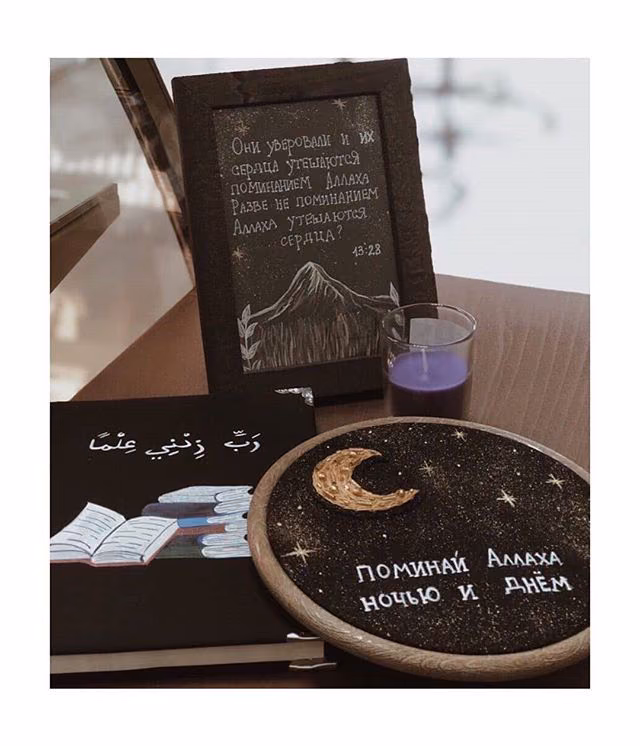 Они уверовали и их
сердца утешаются
поминанием Аллаха
Разве не поминанием
Аллаха утешаются
сердца?
13:28
رَبِّ زِدْنِي عِلْمًا
Поминай Аллаха
ночью и днём